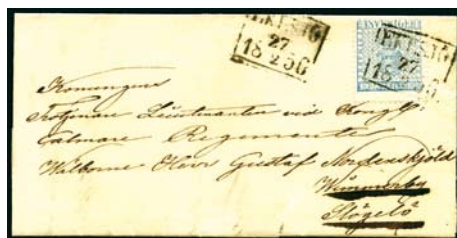 EKESJÖ
27
18 2 56
SVERIGE
EKESJÖ
27
18 2 56
Konungens
Trotjenare Lieutenanten vid Kongl
Calmare Regemente
Welborne Herr Gustaf Nordenskjöld
Wimmerby